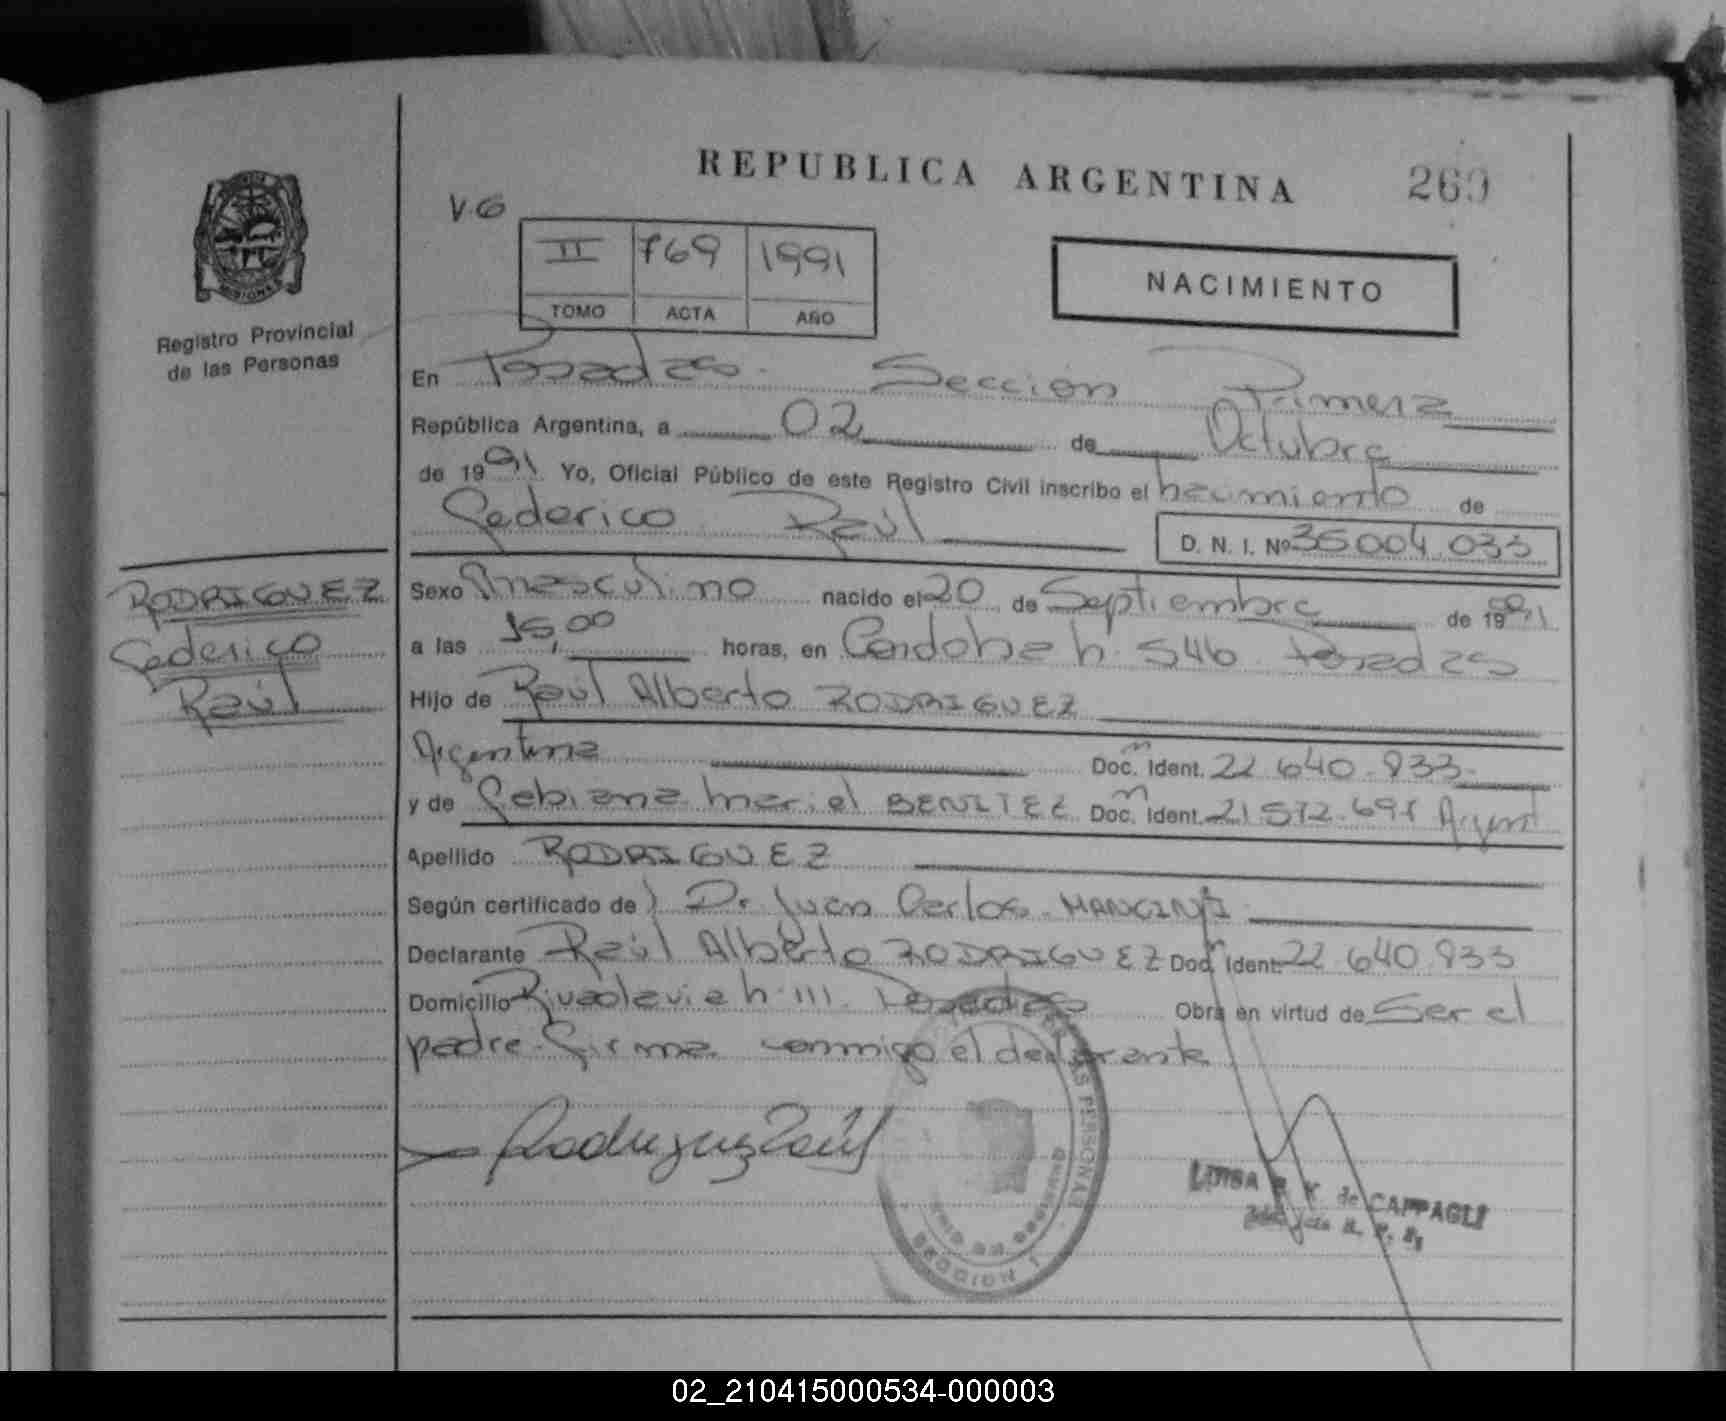 REPUBLICA ARGENTINA
269
V.G
II 769 1991
TOMO ACTA AÑO
NACIMIENTO
MISIONES
Registro Provincial
de las Personas
En Posadas. Sección Primera
República Argentina, a 02 de Octubre
de 1991 Yo, Oficial Público de este Registro Civil inscribo el nacimiento de
Federico Raúl
D. N. I. Nº 36004.033
RODRIGUEZ
Federico
Raúl
Sexo masculino nacido el 20 de Septiembre de 1991
a las 15,00 horas, en Cordoba n. 546. Posadas
Hijo de Raúl Alberto RODRIGUEZ
Argentina Doc. Ident. 22.640.833.
y de Fabiana Mariel BENITEZ Doc. Ident. 21.572.691 Argent
Apellido RODRIGUEZ
Según certificado de Dr Juan Carlos MANCINI
Declarante Raúl Alberto RODRIGUEZ Doc. Ident. 22.640.833
Domicilio Rivadavia n. 111. Posadas Obra en virtud de Ser el
padre. Firma conmigo el declarante
Rodriguez Raúl
LUISA de CAPPAGLI
SECCION 1
02_210415000534-000003